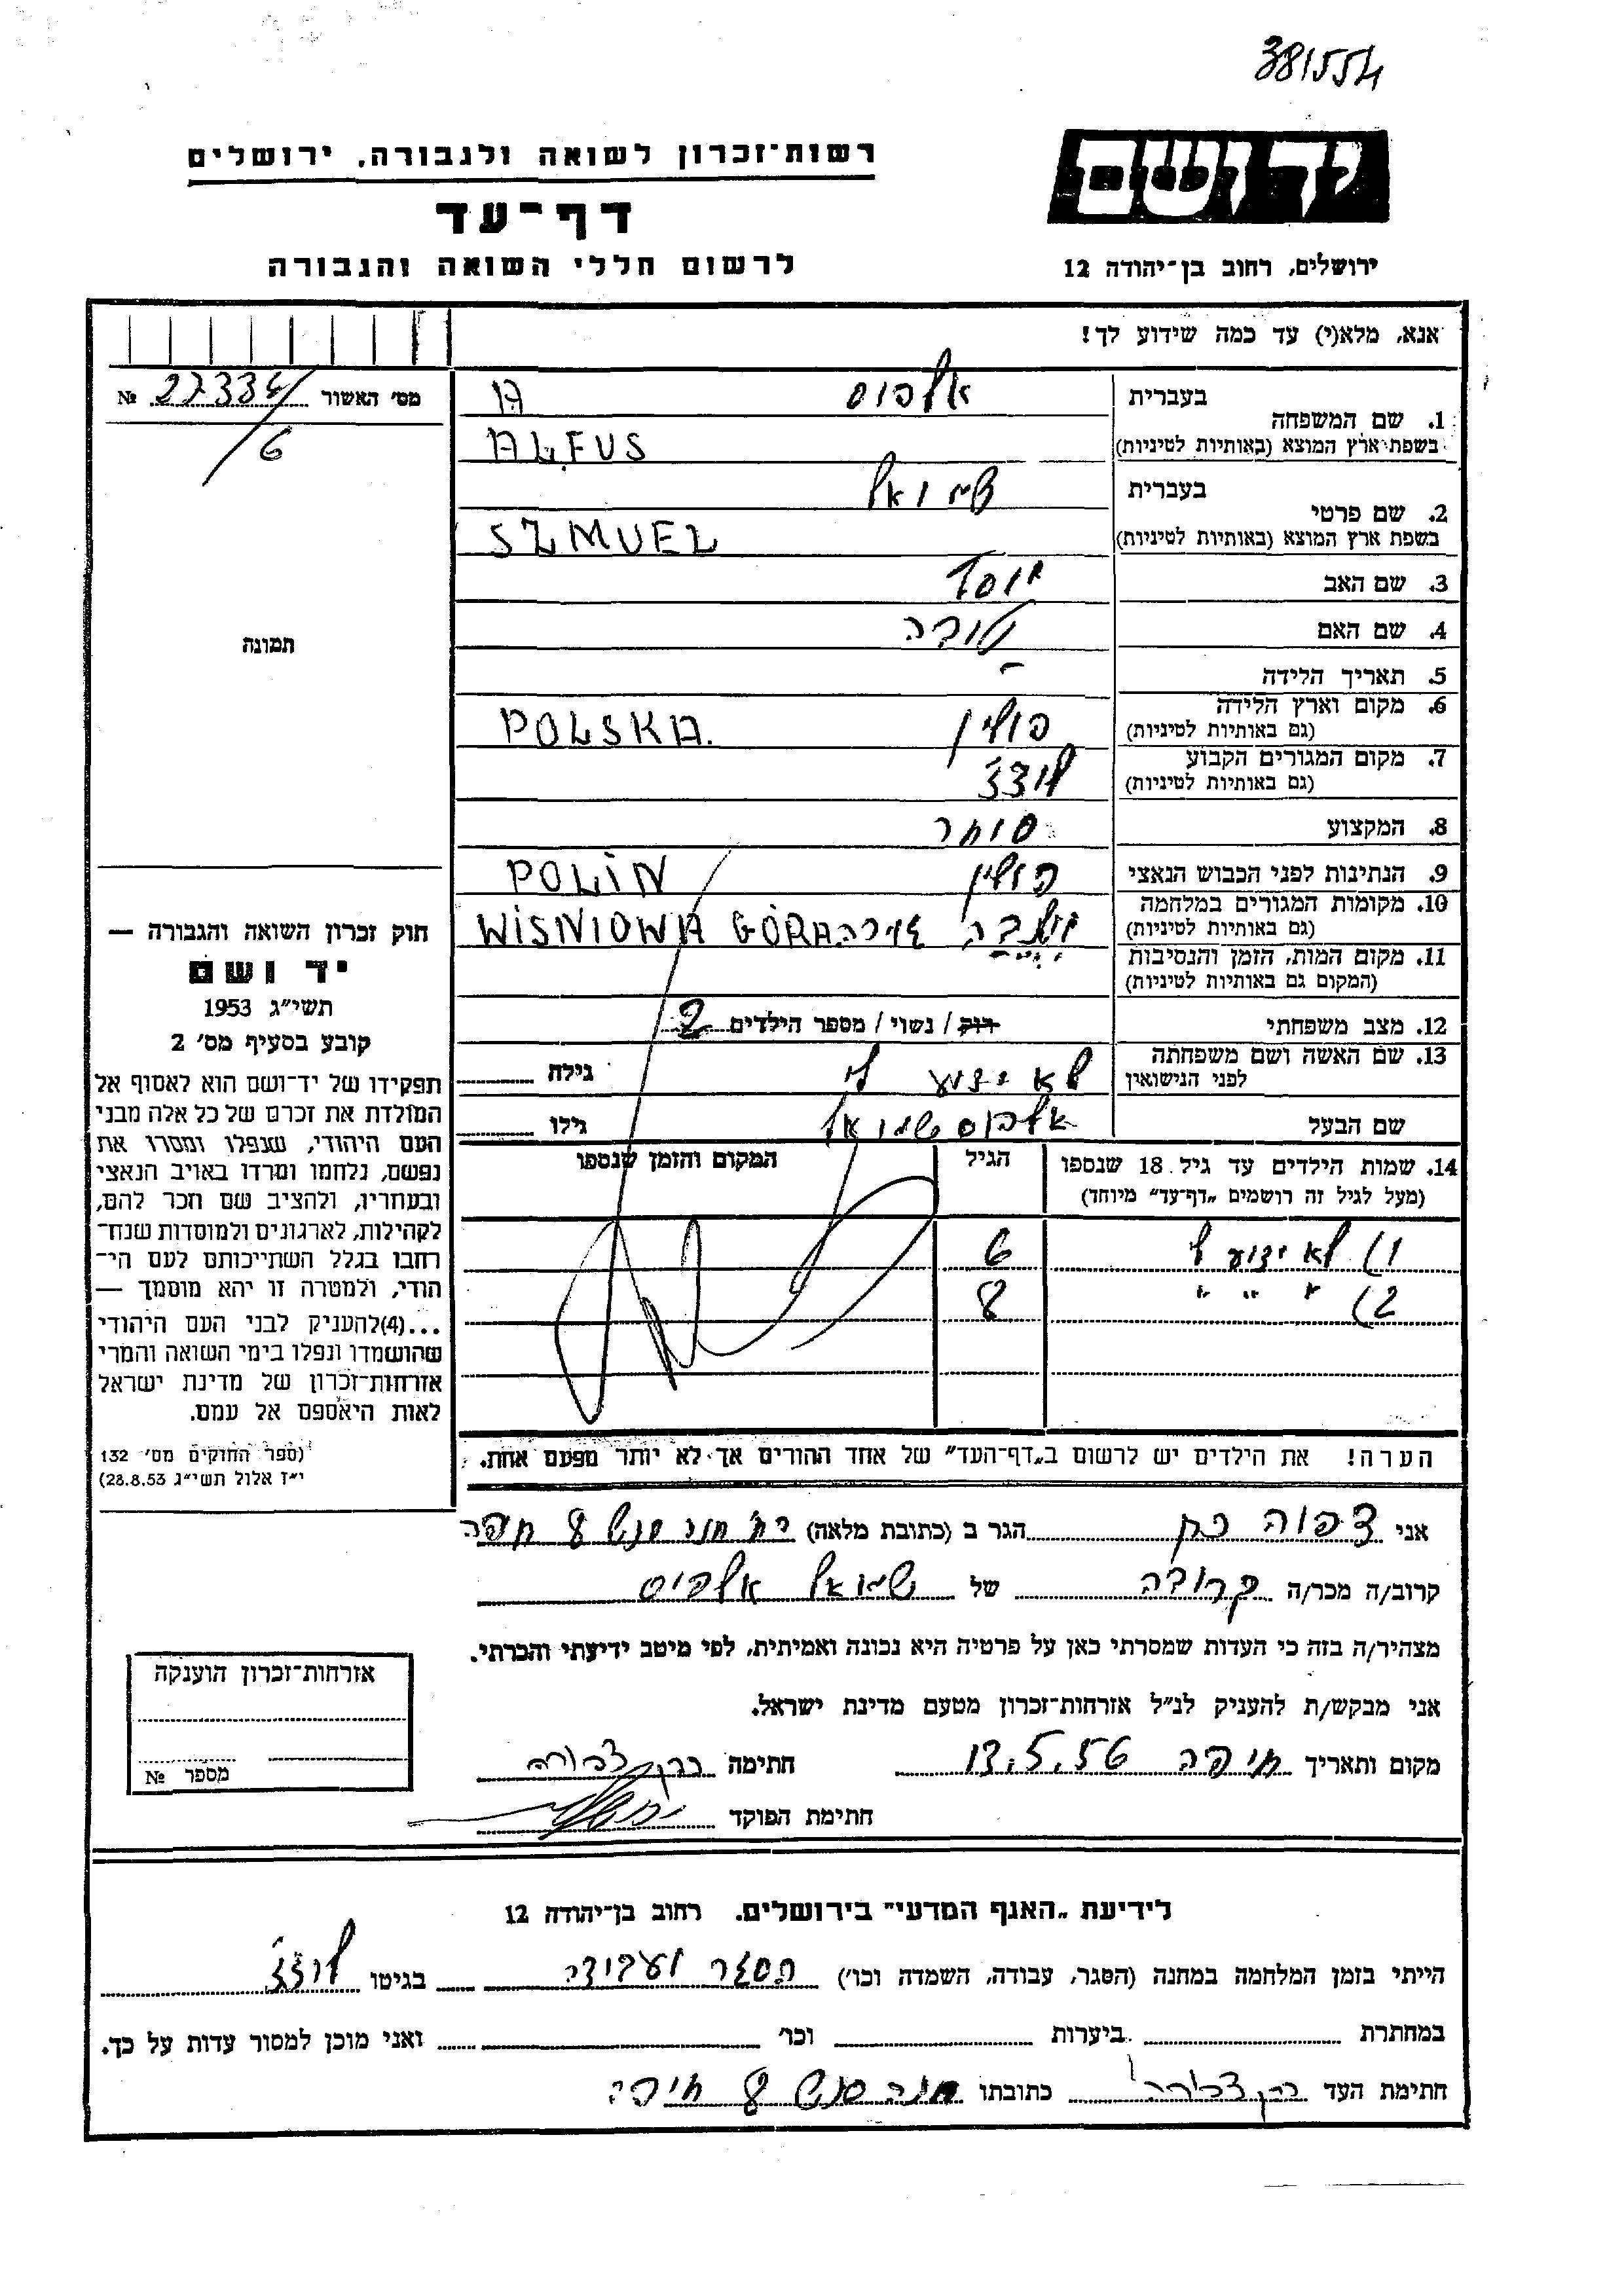 381554
יד ושם
ירושלים, רחוב בן־יהודה 12
רשות־זכרון לשואה ולגבורה, ירושלים
דף־עד
לרשום חללי השואה והגבורה
אנא, מלא(י) עד כמה שידוע לך!
מס׳ האשור № 27334/6
1. שם המשפחה
בעברית אלפוס A
בשפת ארץ המוצא (באותיות לטיניות) ALFUS
2. שם פרטי
בעברית שמואל
בשפת ארץ המוצא (באותיות לטיניות) SZMUEL
3. שם האב יוסף
4. שם האם
5. תאריך הלידה –
6. מקום וארץ הלידה
(גם באותיות לטיניות) פולין POLSKA.
7. מקום המגורים הקבוע
(גם באותיות לטיניות) לודז׳
8. המקצוע סוחר
9. הנתינות לפני הכבוש הנאצי פולין POLIN
10. מקומות המגורים במלחמה
(גם באותיות לטיניות) גורה WIŚNIOWA GÓRA
11. מקום המות, הזמן והנסיבות
(המקום גם באותיות לטיניות)
12. מצב משפחתי רוק / נשוי / מספר הילדים 2
13. שם האשה ושם משפחתה
לפני הנישואין לא ידוע לי גילה
שם הבעל אלפוס שמואל גילו
14. שמות הילדים עד גיל 18 שנספו
(מעל לגיל זה רושמים „דף־עד״ מיוחד)
הגיל
המקום והזמן שנספו
1) לא ידוע לי 6
2) " " " 8
הערה! את הילדים יש לרשום ב„דף־העד״ של אחד ההורים אך לא יותר מפעם אחת.
תמונה
חוק זכרון השואה והגבורה —
יד ושם
תשי״ג 1953
קובע בסעיף מס׳ 2
תפקידו של יד־ושם הוא לאסוף אל
המולדת את זכרם של כל אלה מבני
העם היהודי, שנפלו ומסרו את
נפשם, נלחמו ומרדו באויב הנאצי
ובעוזריו, ולהציב שם וזכר להם,
לקהילות, לארגונים ולמוסדות שנח־
רבו בגלל השתייכותם לעם הי־
הודי, ולמטרה זו יהא מוסמך —
...(4)להעניק לבני העם היהודי
שהושמדו ונפלו בימי השואה והמרי
אזרחות־זכרון של מדינת ישראל
לאות היאספם אל עמם.
(ספר החוקים מס׳ 132
י״ז אלול תשי״ג 28.8.53)
אני צפורה כהן הגר ב (כתובת מלאה) רח׳ חנה סנש 8 חיפה
קרוב/ה מכר/ה קרובה של שמואל אלפוס
מצהיר/ה בזה כי העדות שמסרתי כאן על פרטיה היא נכונה ואמיתית, לפי מיטב ידיעתי והכרתי.
אני מבקש/ת להעניק לנ״ל אזרחות־זכרון מטעם מדינת ישראל.
מקום ותאריך חיפה 13.5.56 חתימה כהן צפורה
חתימת הפוקד
אזרחות־זכרון הוענקה
מספר №
לידיעת „האגף המדעי״ בירושלים. רחוב בן־יהודה 12
הייתי בזמן המלחמה במחנה (הסגר, עבודה, השמדה וכו׳) הסגר ועבודה בגיטו לודז׳
במחתרת ביערות וכו׳ ואני מוכן למסור עדות על כך.
חתימת העד כהן צפורה כתובתו חנה סנש 8 חיפה